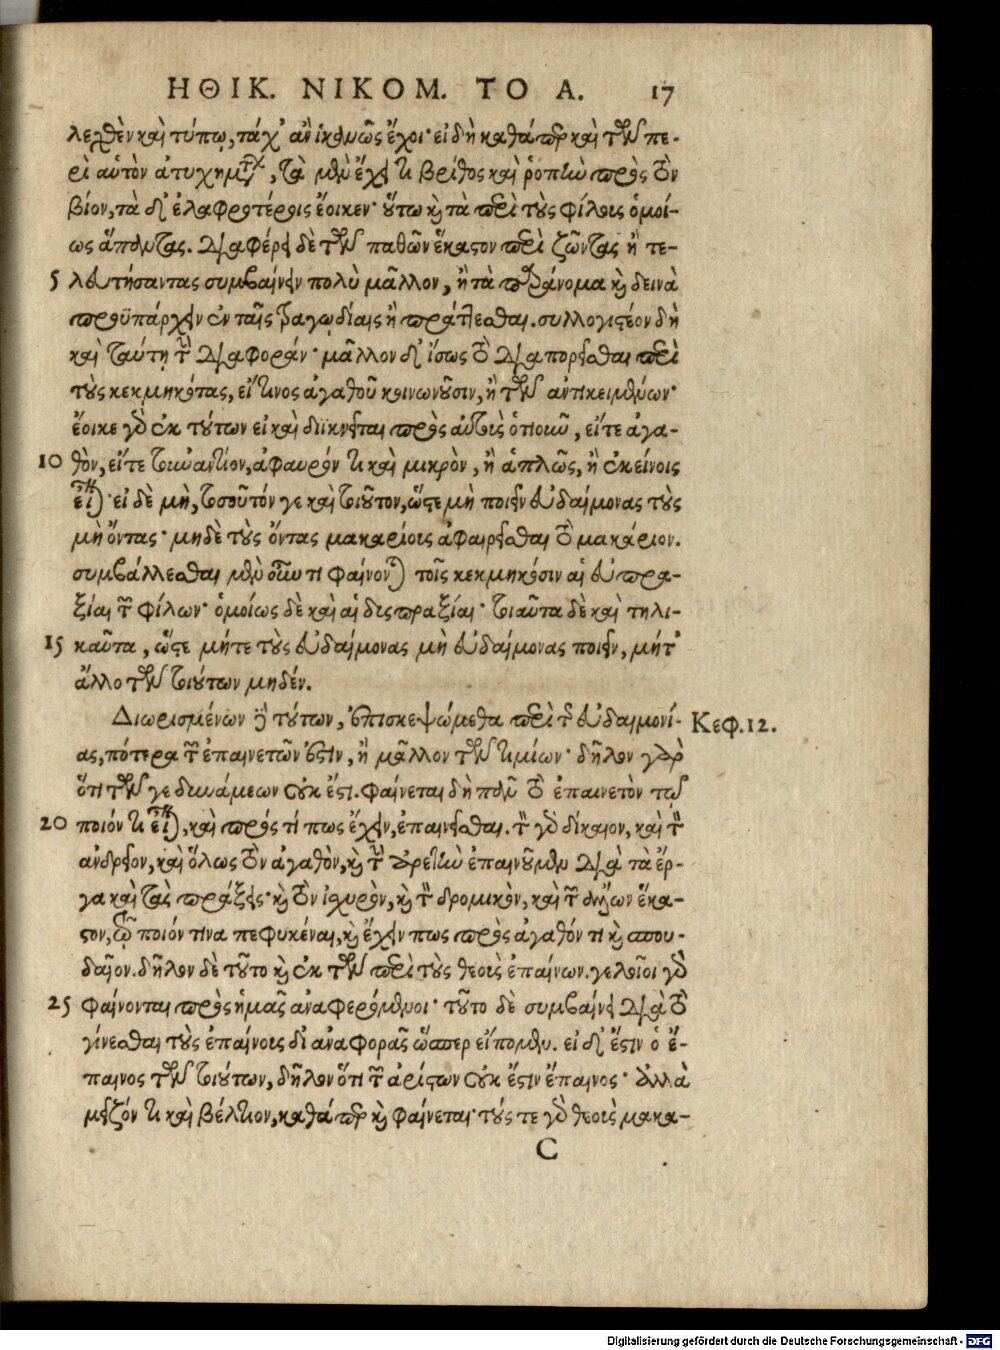 ΗΘΙΚ. ΝΙΚΟΜ. ΤΟ Α. 17
λεχθὲν καὶ τύπῳ, τάχ’ ἂν ἱκανῶς ἔχοι· εἰ δὴ καθάπερ καὶ τῶν πε-
ρὶ αὑτὸν ἀτυχημάτων, τὰ μὲν ἔχει τι βρίθος καὶ ῥοπὴν πρὸς τὸν
βίον, τὰ δ’ ἐλαφροτέροις ἔοικεν· οὕτω καὶ τὰ περὶ τοὺς φίλους ὁμοί-
ως ἅπαντας. διαφέρει δὲ τῶν παθῶν ἕκαστον περὶ ζῶντας ἢ τε-
5 λευτήσαντας συμβαίνειν πολὺ μᾶλλον, ἢ τὰ παράνομα καὶ δεινὰ
προϋπάρχειν ἐν ταῖς τραγῳδίαις ἢ πράττεσθαι. συλλογιστέον δὴ
καὶ ταύτῃ τὴν διαφοράν· μᾶλλον δ’ ἴσως τὸ διαπορεῖσθαι περὶ
τοὺς κεκμηκότας, εἴ τινος ἀγαθοῦ κοινωνοῦσιν, ἢ τῶν ἀντικειμένων·
ἔοικε γὰρ ἐκ τούτων εἰ καὶ διϊκνεῖται πρὸς αὐτοὺς ὁτιοῦν, εἴτε ἀγα-
10 θὸν, εἴτε τοὐναντίον, ἀφαυρόν τι καὶ μικρὸν, ἢ ἁπλῶς, ἢ ἐκείνοις
εἶναι· εἰ δὲ μὴ, τοσοῦτόν γε καὶ τοιοῦτον, ὥστε μὴ ποιεῖν εὐδαίμονας τοὺς
μὴ ὄντας· μηδὲ τοὺς ὄντας μακαρίους ἀφαιρεῖσθαι τὸ μακάριον.
συμβάλλεσθαι μὲν οὖν τι φαίνονται τοῖς κεκμηκόσιν αἱ εὐπρα-
ξίαι τῶν φίλων· ὁμοίως δὲ καὶ αἱ δυςπραξίαι· τοιαῦτα δὲ καὶ τηλι-
15 καῦτα, ὥστε μήτε τοὺς εὐδαίμονας μὴ εὐδαίμονας ποιεῖν, μήτ’
ἄλλο τῶν τοιούτων μηδέν.
Διωρισμένων δὲ τούτων, ἐπισκεψώμεθα περὶ τῆς εὐδαιμονί- Κεφ. 12.
ας, πότερα τῶν ἐπαινετῶν ἐστὶν, ἢ μᾶλλον τῶν τιμίων· δῆλον γὰρ
ὅτι τῶν γε δυνάμεων οὐκ ἔστι. φαίνεται δὴ πᾶν τὸ ἐπαινετὸν τῷ
20 ποιόν τι εἶναι, καὶ πρός τί πως ἔχειν, ἐπαινεῖσθαι. τὸν γὰρ δίκαιον, καὶ τὸν
ἀνδρεῖον, καὶ ὅλως τὸν ἀγαθὸν, καὶ τὴν ἀρετὴν ἐπαινοῦμεν διὰ τὰ ἔρ-
γα καὶ τὰς πράξεις· καὶ τὸν ἰσχυρὸν, καὶ τὸν δρομικὸν, καὶ τῶν ἄλλων ἕκα-
στον, τῷ ποιόν τινα πεφυκέναι, καὶ ἔχειν πως πρὸς ἀγαθόν τι καὶ σπου-
δαῖον. δῆλον δὲ τοῦτο καὶ ἐκ τῶν περὶ τοὺς θεοὺς ἐπαίνων. γελοῖοι γὰρ
25 φαίνονται πρὸς ἡμᾶς ἀναφερόμενοι· τοῦτο δὲ συμβαίνει διὰ τὸ
γίνεσθαι τοὺς ἐπαίνους δι’ ἀναφορᾶς ὥσπερ εἴπομεν. εἰ δ’ ἔστιν ὁ ἔ-
παινος τῶν τοιούτων, δῆλον ὅτι τῶν ἀρίστων οὐκ ἔστιν ἔπαινος· ἀλλὰ
μεῖζόν τι καὶ βέλτιον, καθάπερ καὶ φαίνεται· τούς τε γὰρ θεοὺς μακα-
C
Digitalisierung gefördert durch die Deutsche Forschungsgemeinschaft - DFG